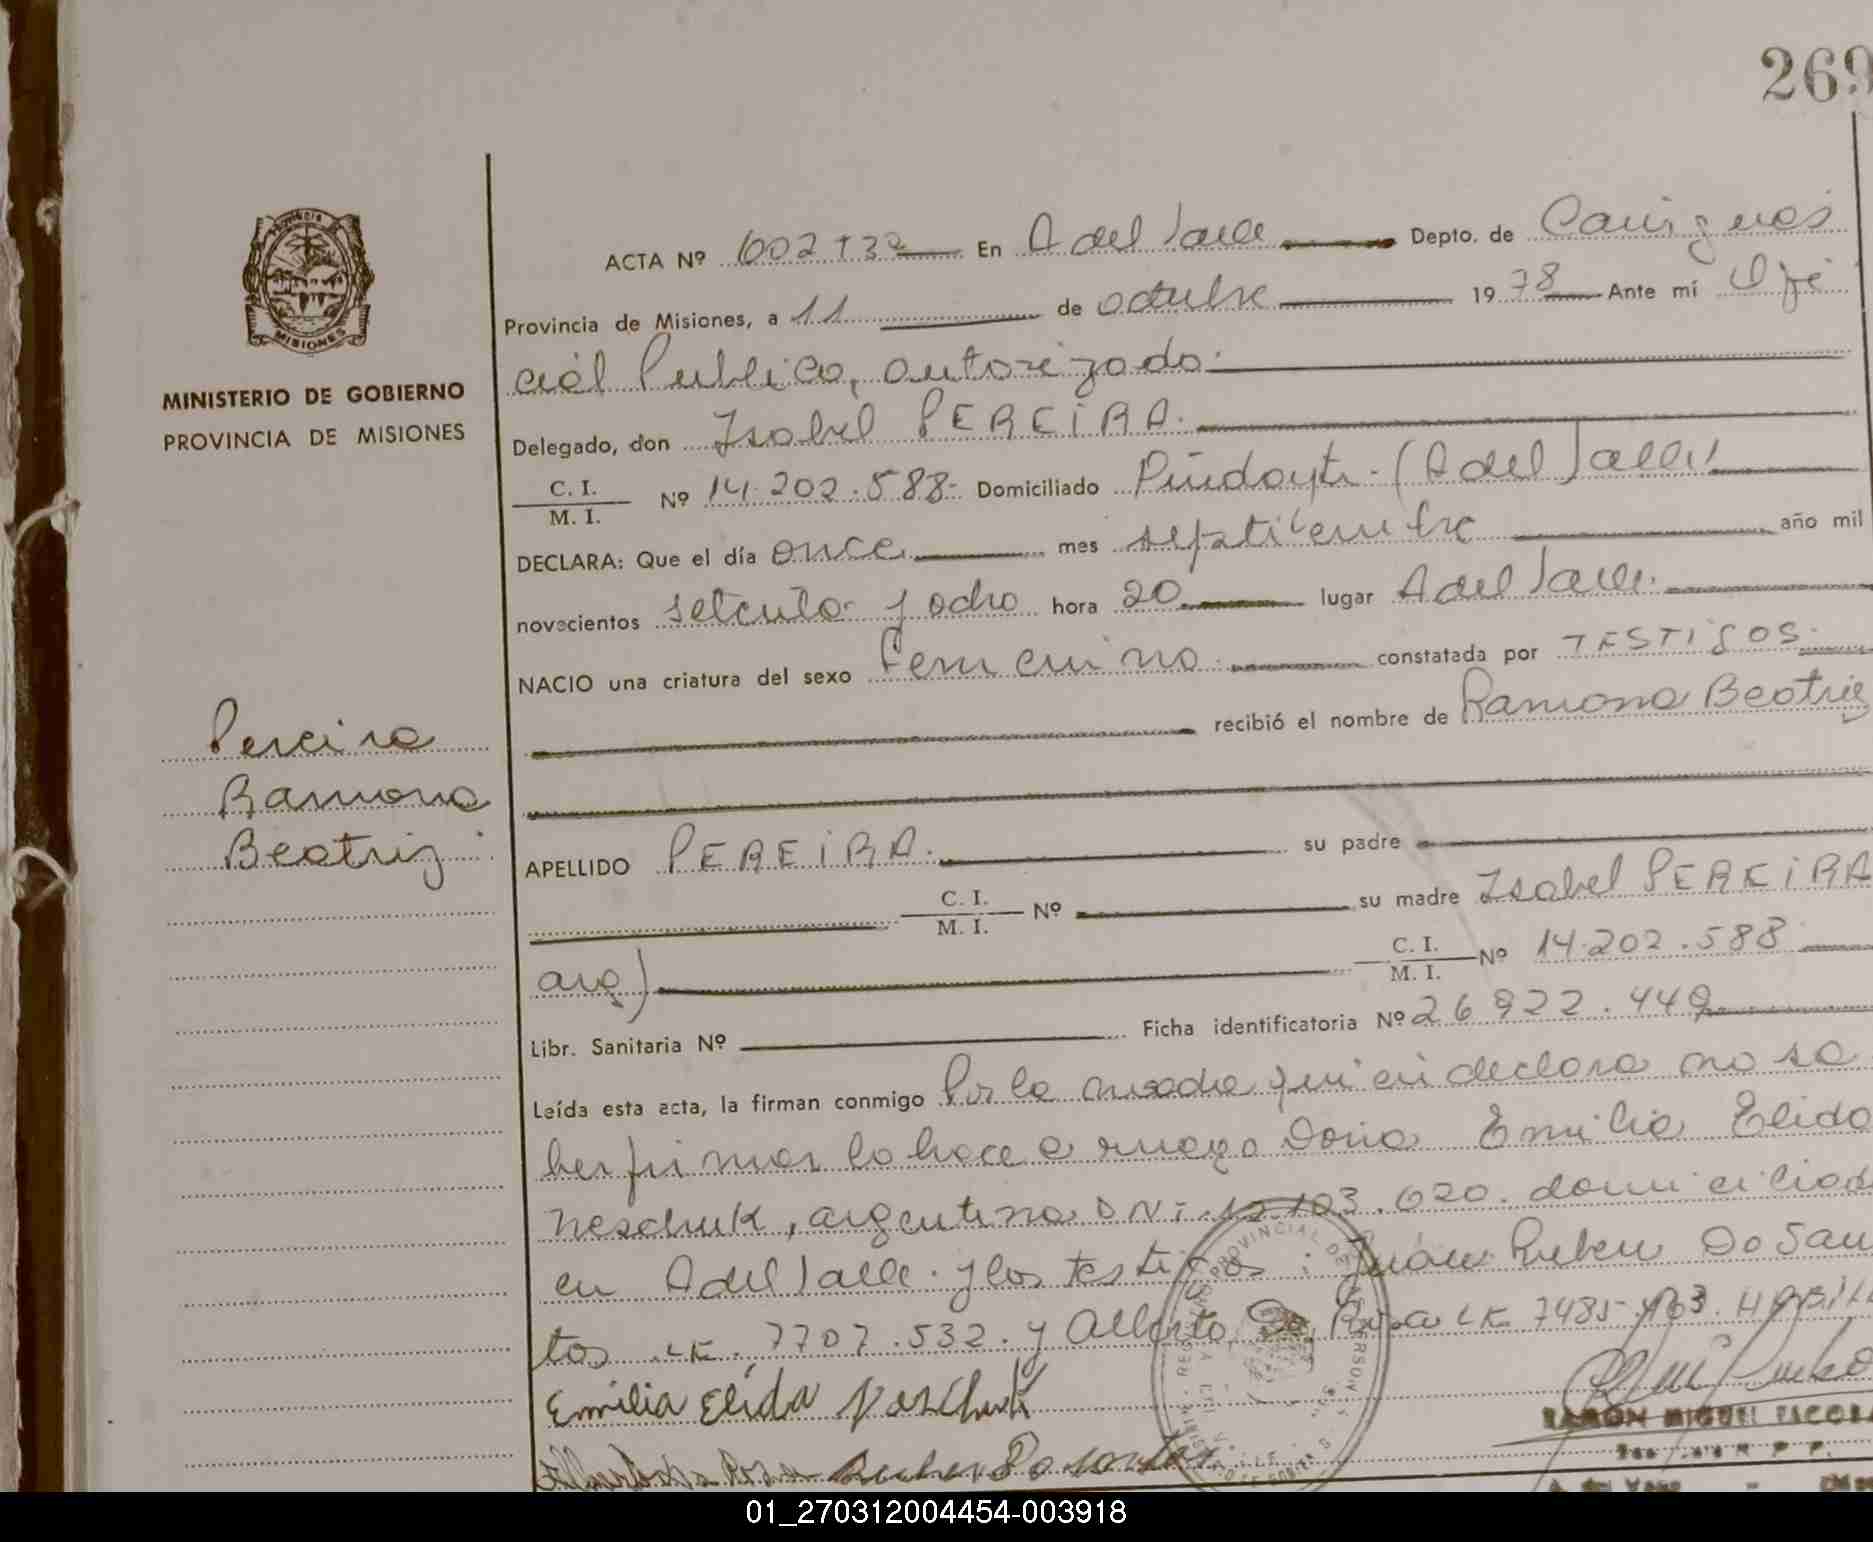 269
ACTA Nº 602 T 3º En A del Valle Depto. de Cainguas
Provincia de Misiones, a 11 de octubre 1978 Ante mí Ofi
cial Publico, autorizado.
MINISTERIO DE GOBIERNO
PROVINCIA DE MISIONES
Delegado, don Isabel PEREIRA.
C. I.
M. I. Nº 14.202.588- Domiciliado Pindayti-(A del Valle)
DECLARA: Que el día once mes septiembre año mil
novecientos setenta y ocho hora 20 lugar A del Valle.
NACIO una criatura del sexo femenino. constatada por TESTIGOS.
recibió el nombre de Ramona Beatriz
Pereira
Ramona
Beatriz
APELLIDO PEREIRA. su padre
C. I.
M. I. Nº su madre Isabel PEREIRA
arg) C. I.
M. I. Nº 14.202.588
Libr. Sanitaria Nº Ficha identificatoria Nº 26.922.449
Leída esta acta, la firman conmigo Por la madre quien declara no sa
ber firmar lo hace a ruego Doña Emilia Elida
Neschuk, argentina DNI 12.103.020. domiciliad
en A del Valle. y los testigos: Juan Ruben Do San
tos LE. 7707.532. y Alberto Da Rosa LE 7485 HABIL
Emilia Elida Neschuk
Alberto da Rosa Ruben Do santos
RAMON MIGUEL ESCOBA
01_270312004454-003918